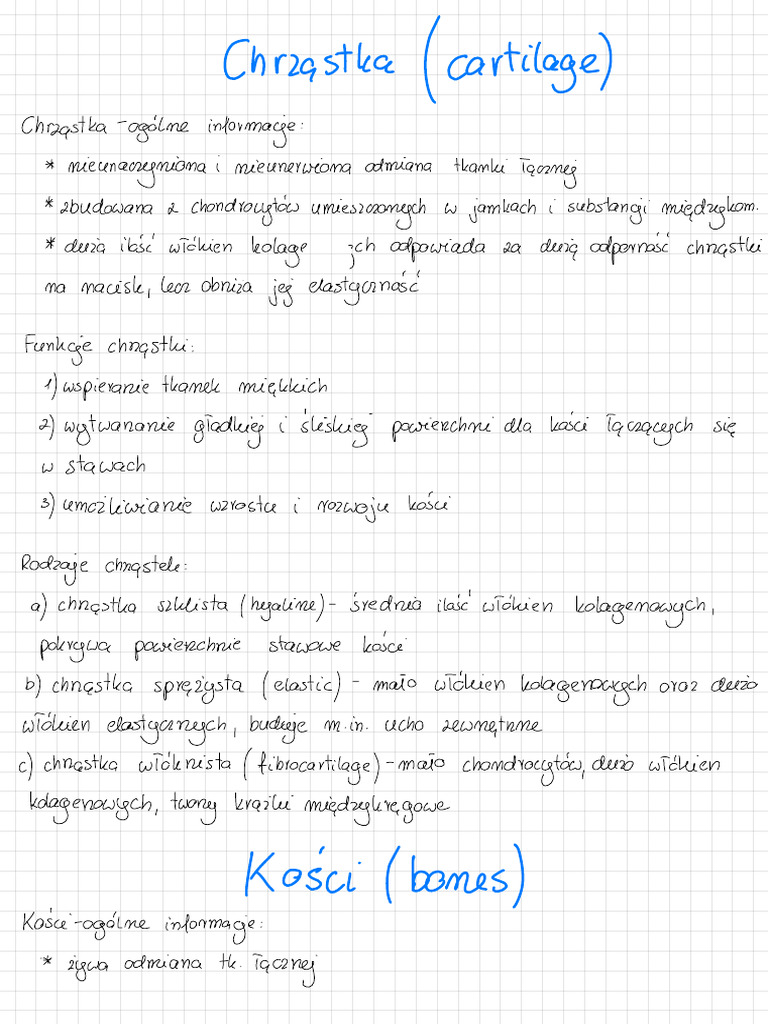 Chrząstka (cartilage)
Chrząstka - ogólne informacje:
* nieunaczyniona i nieunerwiona odmiana tkanki łącznej
* zbudowana z chondrocytów umieszczonych w jamkach i substancji międzykom.
* duża ilość włókien kolage jch odpowiada za dużą odporność chrząstki
na nacisk, lecz obniża jej elastyczność
Funkcje chrząstki:
1) wspieranie tkanek miękkich
2) wytwarzanie gładkiej i śliskiej powierzchni dla kości łączących się
w stawach
3) umożliwianie wzrostu i rozwoju kości
Rodzaje chrząstek:
a) chrząstka szklista (hyaline) - średnia ilość włókien kolagenowych,
pokrywa powierzchnie stawowe kości
b) chrząstka sprężysta (elastic) - mało włókien kolagenowych oraz dużo
włókien elastycznych, buduje m.in. ucho zewnętrzne
c) chrząstka włóknista (fibrocartilage) - mało chondrocytów, dużo włókien
kolagenowych, tworzy krążki międzykręgowe
Kości (bones)
Kości - ogólne informacje:
* żywa odmiana tk. łącznej